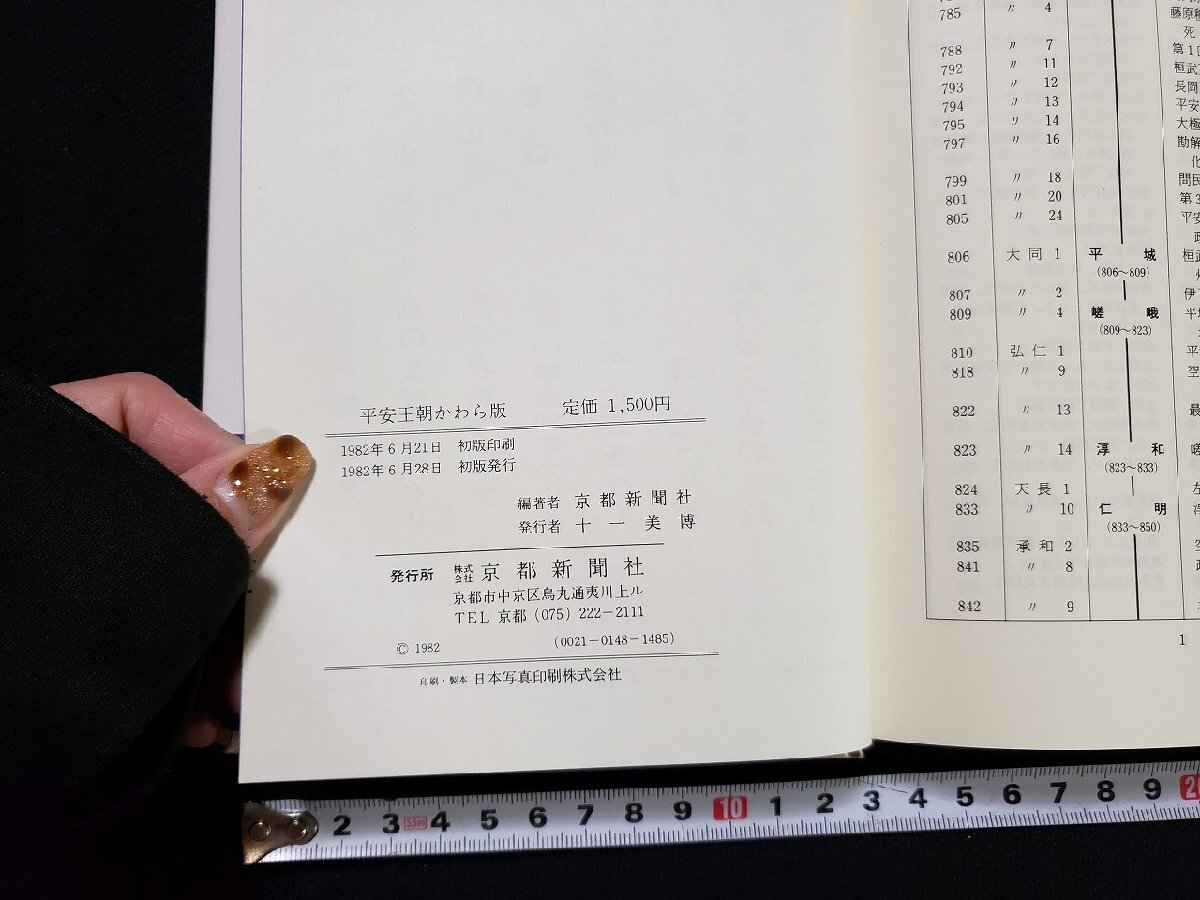 平安王朝かわら版　定価 1,500円
1982年6月21日　初版印刷
1982年6月28日　初版発行
編著者　京都新聞社
発行者　十一美博
発行所　株式会社 京都新聞社
京都市中京区烏丸通夷川上ル
TEL 京都 (075) 222-2111
© 1982　(0021-0148-1485)
印刷・製本 日本写真印刷株式会社
785 〃 4 藤原
死
788 〃 7 第1
792 〃 11 桓武
793 〃 12 長岡
794 〃 13 平安
795 〃 14 大極
797 〃 16 勘解
799 〃 18 問民
801 〃 20 第3
805 〃 24 平安
806 大同 1 平城 桓武
(806〜809)
807 〃 2 伊
809 〃 4 嵯峨 平城
(809〜823)
810 弘仁 1 平
818 〃 9 空
822 〃 13 最
823 〃 14 淳和 嵯
(823〜833)
824 天長 1 左
833 〃 10 仁明 淳
(833〜850)
835 承和 2 空
841 〃 8
842 〃 9
1
2 3 3.5m 4 5 6 7 8 9 10 1 2 3 4 5 6 7 8 9 2